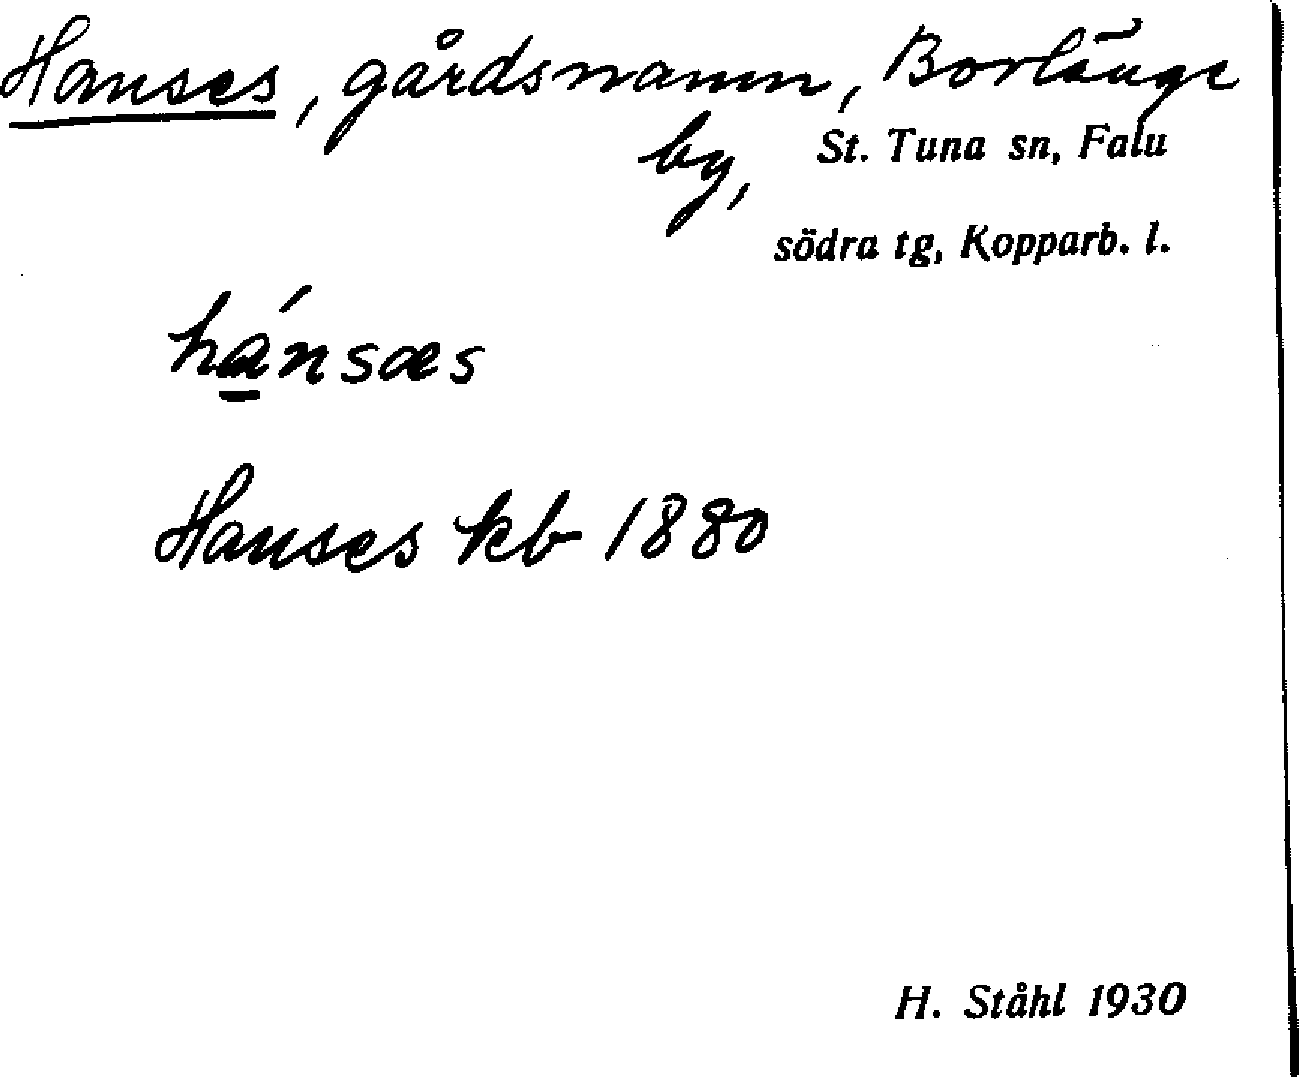 Hanses, gårdsnamn, Borlänge
by, St. Tuna sn, Falu
södra tg, Kopparb. l.
hánsæs
Hanses kb 1880
H. Ståhl 1930